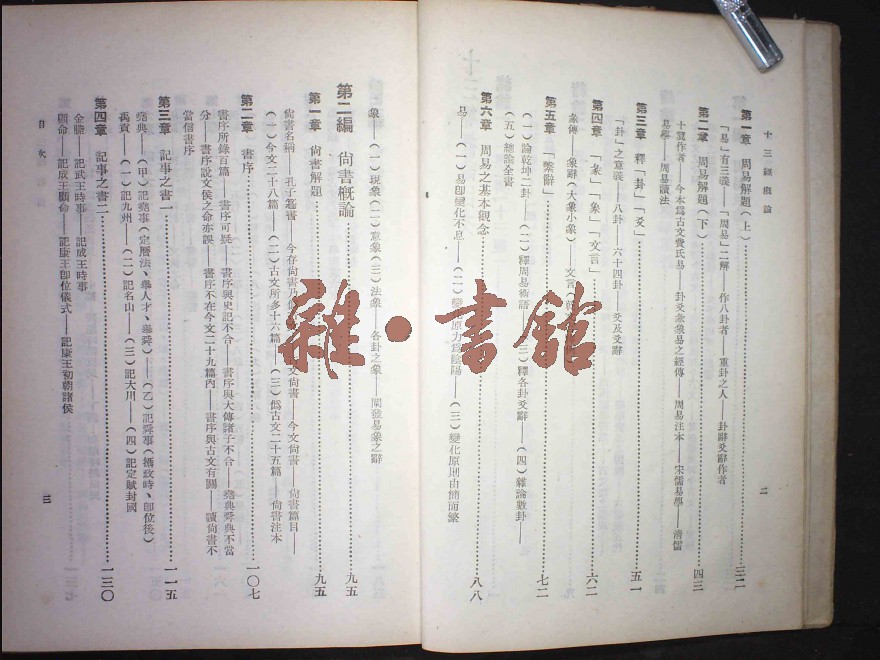 十三經概論
二
第一章 周易解題(上)……三二
「易」有三義——「周易」二解——作八卦者——重卦之人——卦辭爻辭作者
第二章 周易解題(下)……四三
十翼作者——今本爲古文費氏易——卦爻彖象易之經傳——周易注本——宋儒易學——清儒
易學——周易讀法
第三章 釋「卦」「爻」……五一
「卦」之意義——八卦——六十四卦——爻及爻辭
第四章 「彖」「象」「文言」……六二
彖傳——象辭(大象小象)——文言
第五章 「繫辭」……七二
(一)論乾坤二卦——(二)釋周易術語——(三)釋各卦爻辭——(四)雜論數卦——
(五)總論全書
第六章 周易之基本觀念……八八
易——(一)易卽變化不息——(二)變化原力爲陰陽——(三)變化原則由簡而繁
象——(一)現象(二)意象(三)法象——各卦之象——闡發易象之辭
第二編 尙書概論……九五
第一章 尙書解題……九五
尙書名稱——孔子删書——今存尙書乃 文尙書——今文尙書——尙書篇目——
(一)今文二十八篇——(二)古文所多十六篇——(三)僞古文二十五篇——尙書注本
第二章 書序……一〇七
書序所錄百篇——書序可疑——書序與史記不合——書序與大傳諸子不合——堯典舜典不當
分——書序說文侯之命亦誤——書序不在今文二十九篇內——書序與古文有關——讀尙書不
當信書序
第三章 記事之書一……一一五
堯典——(甲)記堯事(定曆法、舉人才、舉舜)——(乙)記舜事(攝政時、卽位後)
禹貢——(一)記九州——(二)記名山——(三)記大川——(四)記定賦封國
第四章 記事之書二……一三〇
金縢——記武王時事——記成王時事
顧命——記成王顧命——記康王卽位儀式——記康王初朝諸侯
目次
三
雜·書館